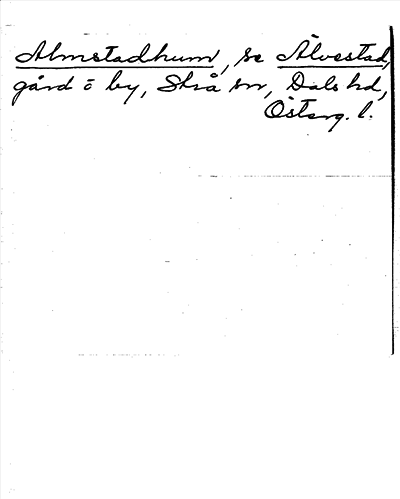 Almstadhum, se Älvestad,
gård o by, Strå sn, Dals hd,
Österg. l.